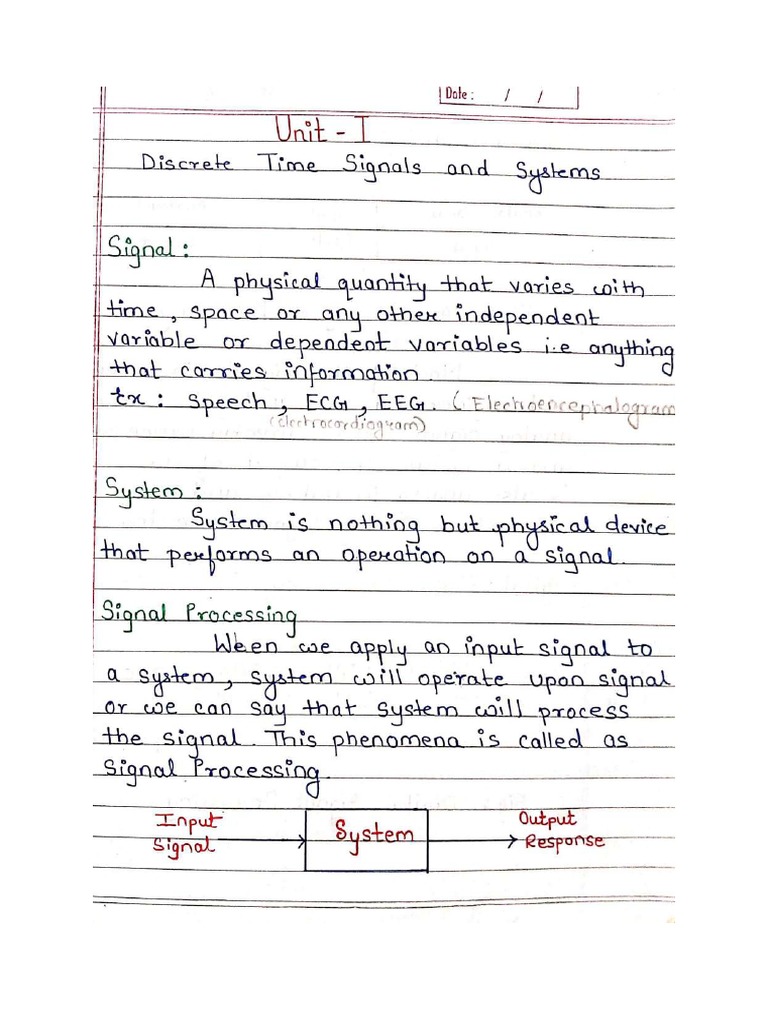 Date : / /
Unit - I
Discrete Time Signals and Systems
Signal :
A physical quantity that varies with
time, space or any other independent
variable or dependent variables i.e anything
that carries information.
Ex : Speech, ECG, EEG. (Electroencephalogram
(Electrocardiogram)
System :
System is nothing but physical device
that performs an operation on a signal.
Signal Processing
When we apply an input signal to
a system, system will operate upon signal
or we can say that system will process
the signal. This phenomena is called as
Signal Processing.
Input
Signal
System
Output
Response